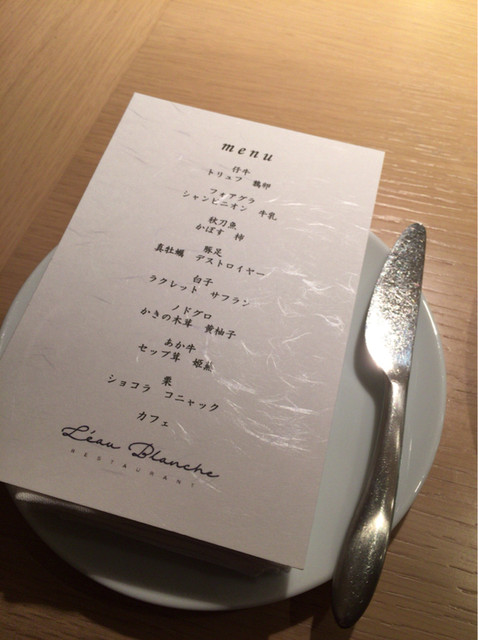 menu
仔牛
トリュフ 鶏卵
フォアグラ
シャンピニオン 牛乳
秋刀魚
かぼす 柿
豚足
真牡蠣 デストロイヤー
白子
ラクレット サフラン
ノドグロ
かきの木茸 黄柚子
あか牛
セップ茸
栗
ショコラ コニャック
カフェ
L'eau Blanche
RESTAURANT